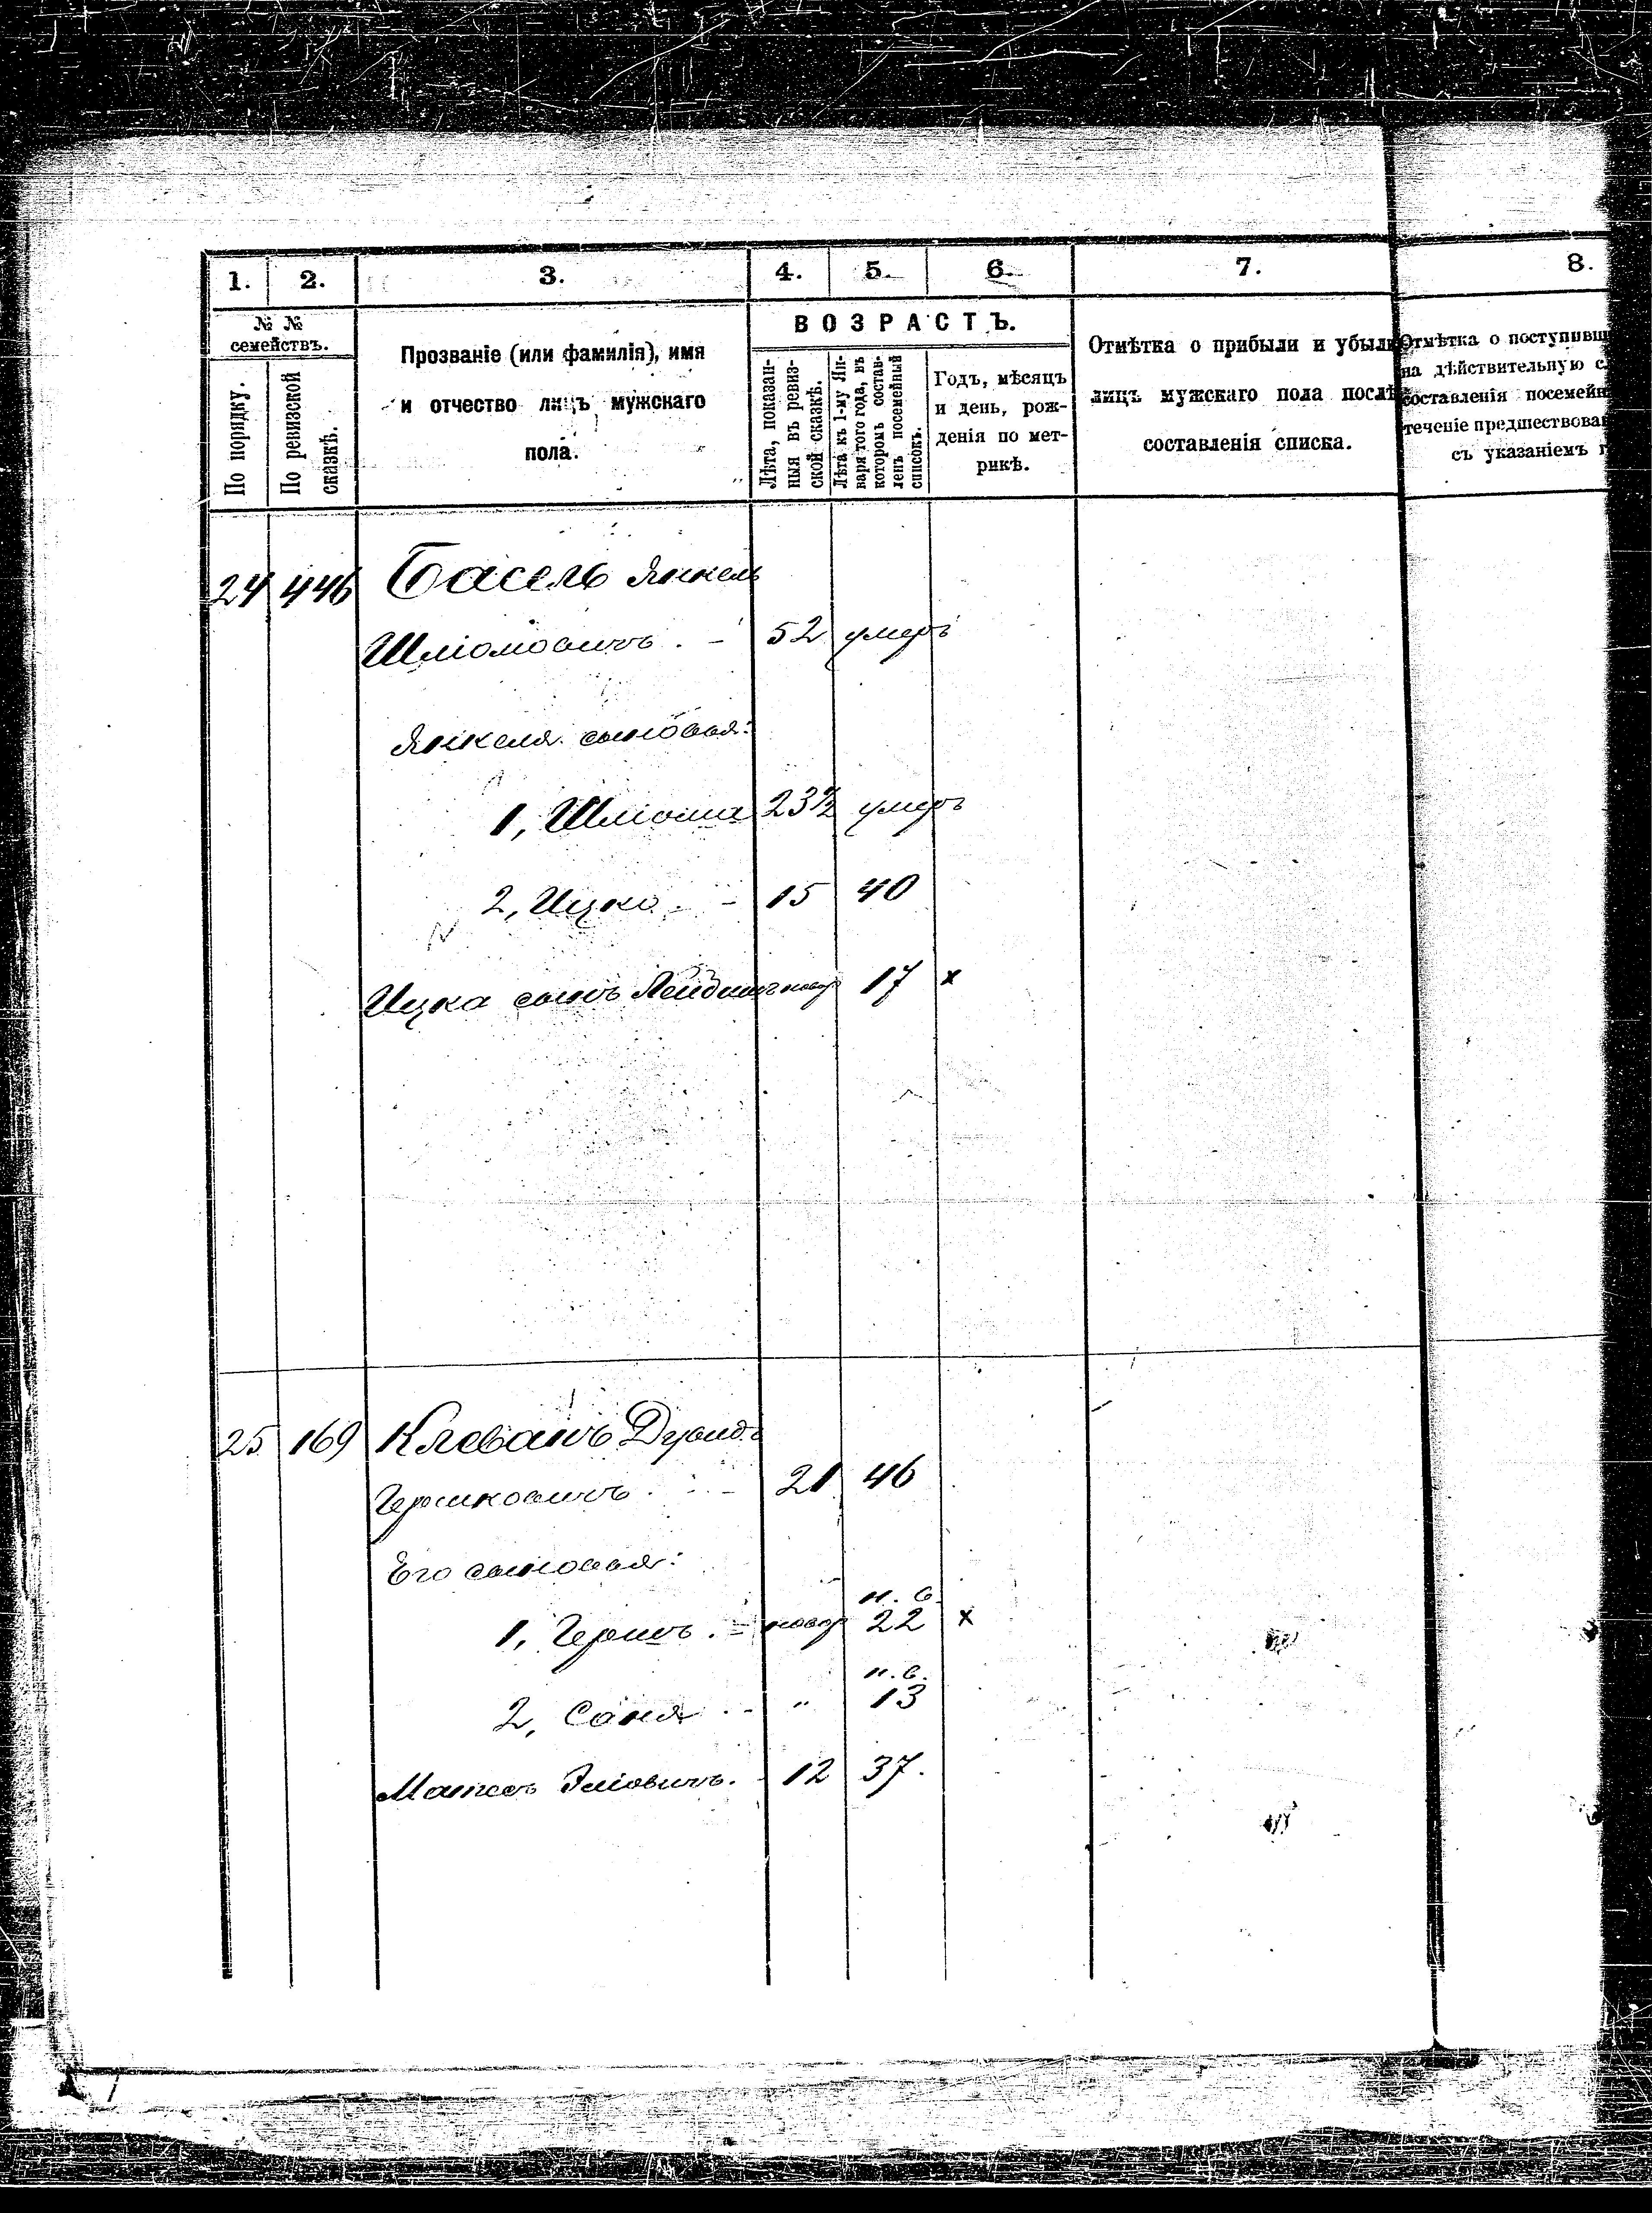 1. 2. 3. 4. 5. 6. 7. 8.
№ №
семействъ.
По порядку.
По ревизской
сказкѣ.
Прозваніе (или фамилія), имя
и отчество лицъ мужскаго
пола.
ВОЗРАСТЪ.
Лѣта, показан-
ныя въ ревиз-
ской сказкѣ.
Лѣта къ 1-му Ян-
варя того года, въ
которомъ состав-
ленъ посемейный
списокъ.
Годъ, мѣсяцъ
и день, рож-
денія по мет-
рикѣ.
Отмѣтка о прибыли и убыли
лицъ мужскаго пола послѣ
составленія списка.
Отмѣтка о поступивш
на дѣйствительную с
составленія посемейн
теченіе предшествова
съ указаніемъ г
24 446 Басель Янкель
Шліомовичъ. - 52 умеръ
Янкеля сыновья:
1, Шліома 23½ умеръ
2, Ицко - - 15 40
Ицка сынъ новор 17 x
25 169 Клеванъ Дувидъ
Гершковичъ - 21 46
Его сыновья:
н. в.
1, Гершъ. - новор 22 x
н. в.
2, Соня - - " 13
12 37.